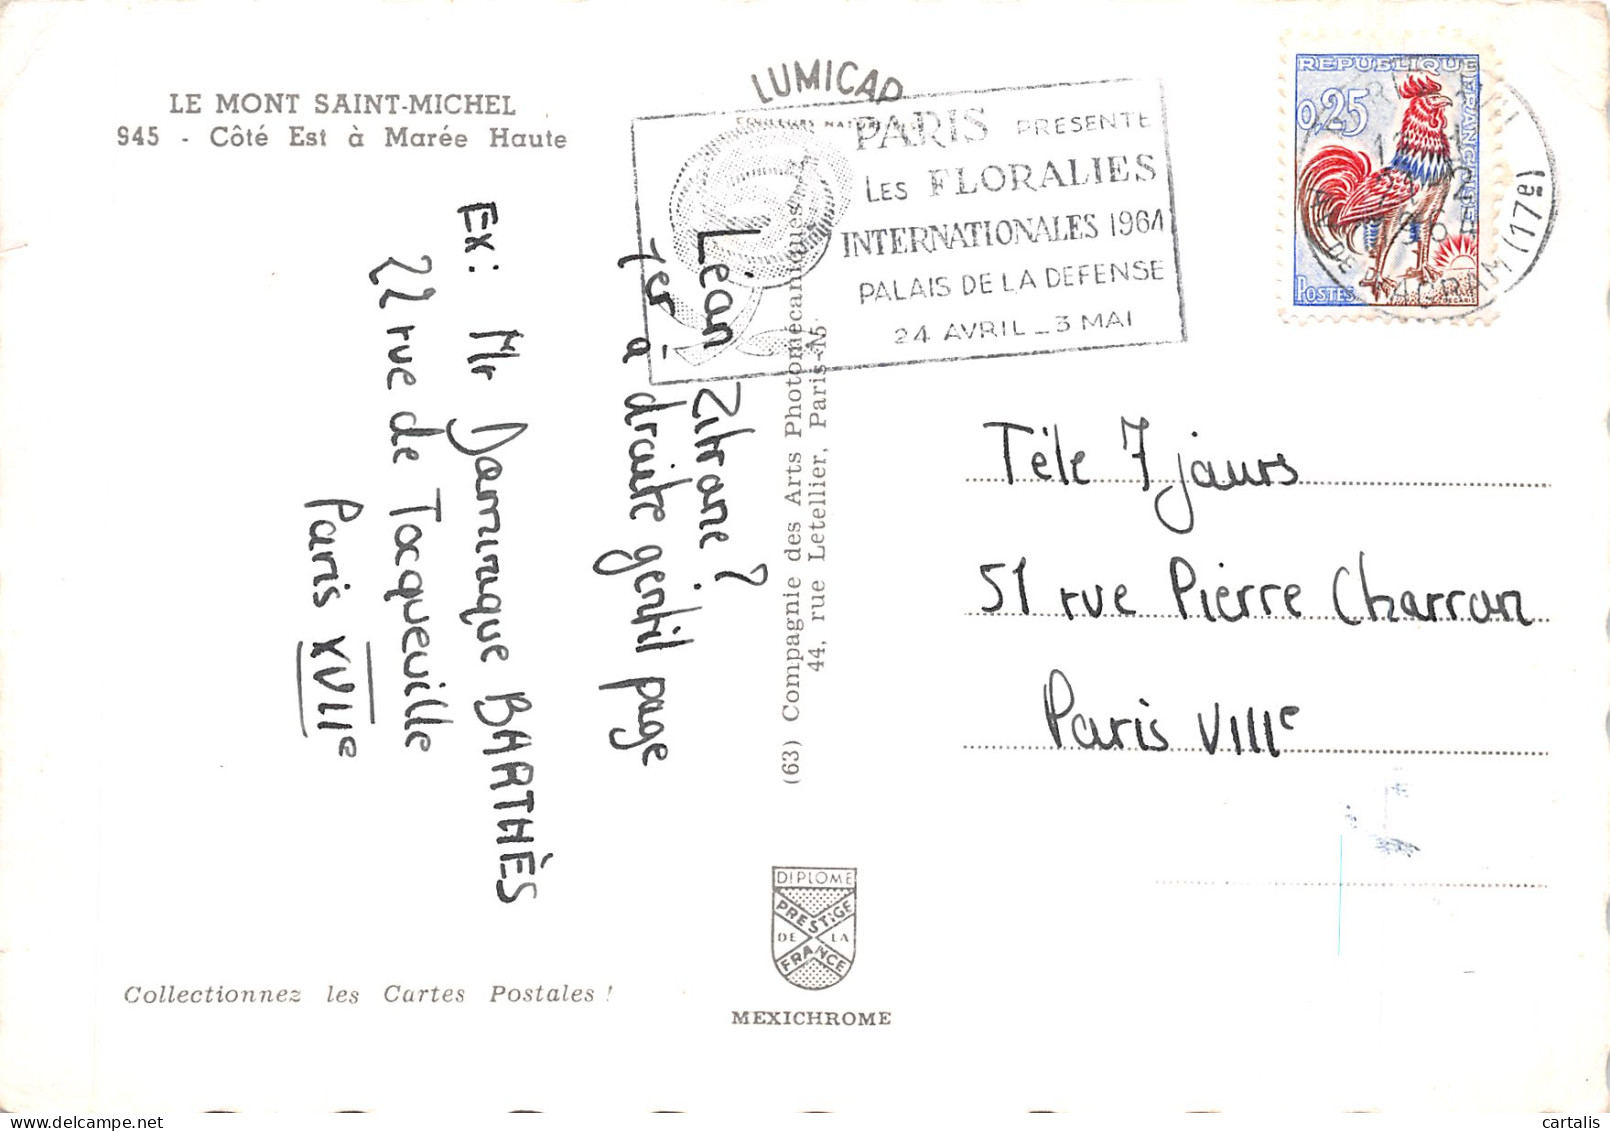 LE MONT SAINT-MICHEL
945 - Côté Est à Marée Haute
LUMICAP
PARIS PRESENTE
LES FLORALIES
INTERNATIONALES 1964
PALAIS DE LA DEFENSE
24 AVRIL _ 3 MAI
REPUBLIQUE
FRANÇAISE
0,25
POSTES
(17e)
Léan Zitrane ?
1er à draite gentil page
Ex: Mr Daminique BARTHÈS
22 rue de Tacqueville
Paris XVIIe
(63) Compagnie des Arts Photomécaniques
44, rue Letellier, Paris-15
Téle 7 jaurs
51 rue Pierre Charran
Paris VIIIe
DIPLOME
PRESTIGE
DE LA
FRANCE
MEXICHROME
Collectionnez les Cartes Postales !
cartalis